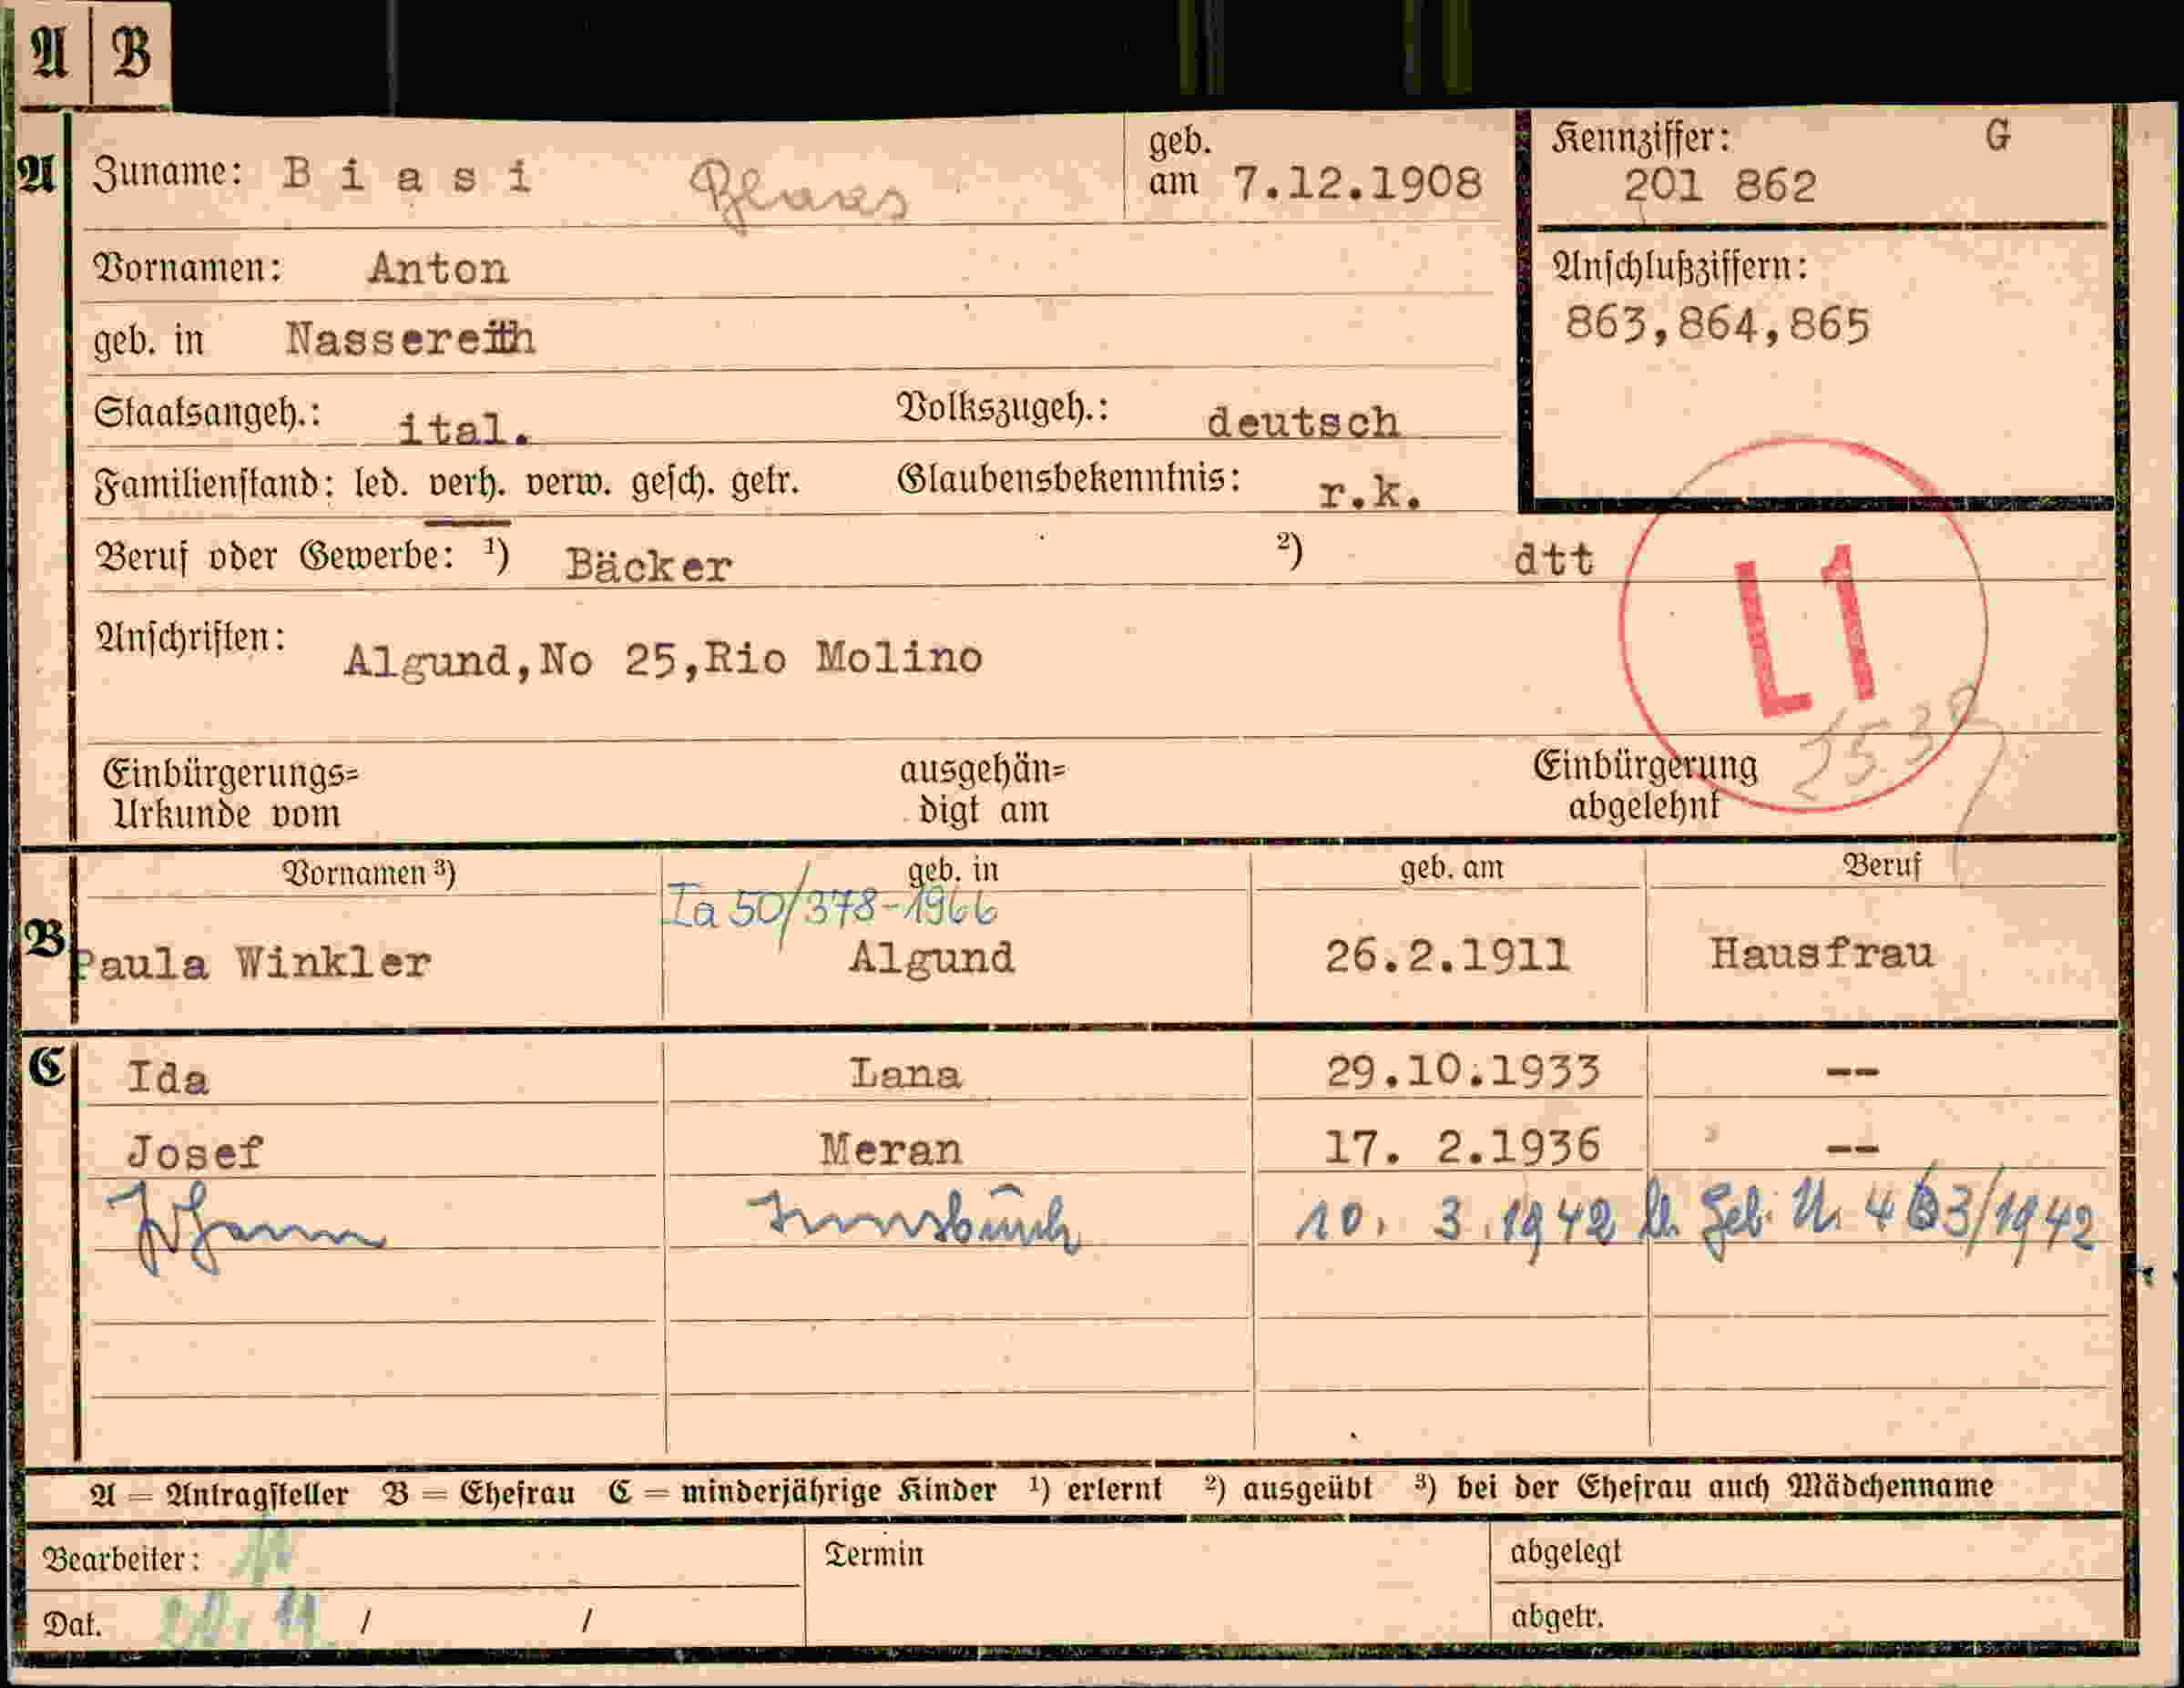 A B
A Zuname: Biasi geb. am 7.12.1908
Kennziffer: G
201 862
Vornamen: Anton
Anschlußziffern:
863,864,865
geb. in Nassereith
Staatsangeh.: ital. Volkszugeh.: deutsch
Familienstand: led. verh. verw. gesch. getr. Glaubensbekenntnis: r.k.
Beruf oder Gewerbe: ¹) Bäcker ²) dtt
L1
Anschriften: Algund,No 25,Rio Molino
Einbürgerungs= ausgehän= Einbürgerung
Urkunde vom digt am abgelehnt
Vornamen ³) geb. in geb. am Beruf
Ia 50/378-1966
B Paula Winkler Algund 26.2.1911 Hausfrau
C Ida Lana 29.10.1933 --
Josef Meran 17. 2.1936 --
Johann Innsbruck 10. 3.1942 Geb. 463/1942
A = Antragsteller B = Ehefrau C = minderjährige Kinder ¹) erlernt ²) ausgeübt ³) bei der Ehefrau auch Mädchenname
Bearbeiter: Termin abgelegt
Dat. / / abgetr.